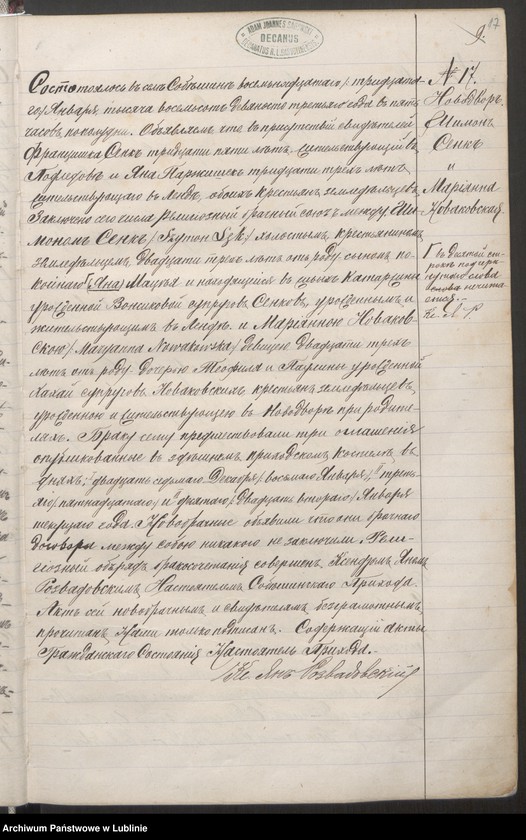 ADAM JOANNES
DECANUS
9.
17
Состоялось въ селѣ Собѣшинѣ восемьнадцатаго /: тридцата-
го/ Января тысяча восемьсотъ девяносто третьяго года въ пять
часовъ пополудни. Объявляемъ что въ присутствіи свидѣтелей
Францишка Сенкъ тридцати пяти лѣтъ, жительствующій въ
и Яна тридцати трехъ лѣтъ
жительствующаго въ обоихъ крестьянъ земледѣльцевъ
Заключено сего числа религіозный брачный союзъ между Ши-
мономъ Сенкъ / Szymon Sęk / холостымъ, крестьяниномъ
земледѣльцемъ двадцати трехъ лѣтъ отъ роду сыномъ по-
койнаго [Яна] Мацѣя и находящейся въ живыхъ Катаржины
урожденной супруговъ Сенковъ, урожденнымъ и
жительствующимъ въ и Маріанною Новаков-
скою / Maryanna Nowakowska / девицею двадцати трехъ
лѣтъ отъ роду дочерью Теофиля и Паулины урожденной
супруговъ Новаковскихъ крестьянъ земледѣльцевъ,
урожденною и жительствующею въ Новодворѣ при родите-
ляхъ. Браку сему предшествовали три оглашенія
опубликованные въ здѣшнемъ приходскомъ костелѣ въ
дняхъ: двадцать седьмаго Декабря / восьмаго Января /, третья-
го / пятнадцатаго / и десятаго / двадцать втораго / Января
текущаго года. Новобрачные объявили что они брачнаго
договора между собою никакого не заключили. Рели-
гіозный обрядъ бракосочетанія совершенъ Ксендзомъ Яномъ
Розвадовскимъ Настоятелемъ Собѣшинскаго Прихода.
Актъ сей новобрачнымъ и свидѣтелямъ безграмотнымъ
прочитанъ Нами только подписанъ. Содержащій акты
Гражданскаго Состоянія Настоятель Прихода.
Кс. Янъ Розвадовскій
№ 17.
Новодворъ.
Шимонъ
Сенкъ
и
Маріянна
Новаковская
Г въ десятой ст-
рокѣ
слова
слова не чита-
ется.
Кс. Я. Р.
Archiwum Państwowe w Lublinie